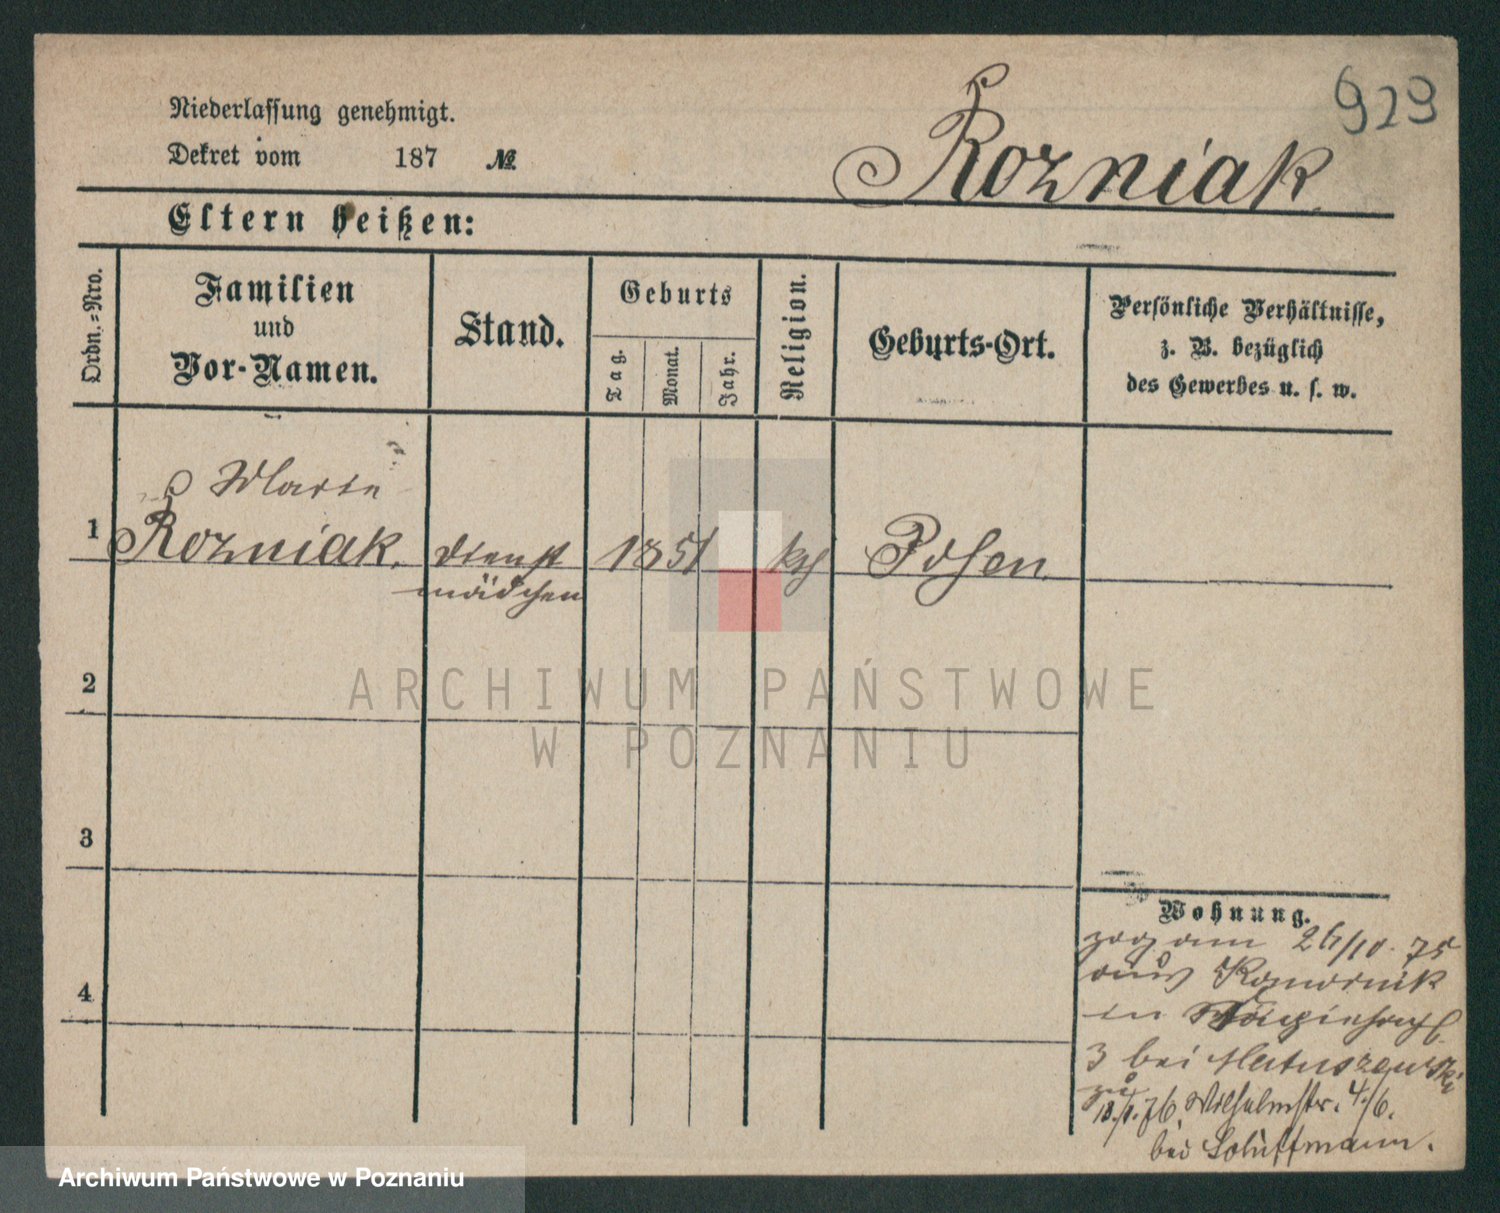 929
Niederlassung genehmigt.
Dekret vom 187 №
Rozniak
Eltern heißen:
Ordn.-Nro.
Familien
und
Vor-Namen.
Stand.
Geburts
Tag.
Monat.
Jahr.
Religion.
Geburts-Ort.
Persönliche Verhältnisse,
z. B. bezüglich
des Gewerbes u. s. w.
Marie
1 Rozniak. Dienst 1851 kth Posen
mädchen
2
3
4
Wohnung.
zog am 26/10. 75
aus Komornik
in
3 bei Matuszewski
zu
18./1. 76. Wilhelmstr. 4./6.
bei Schiffmann.
ARCHIWUM PAŃSTWOWE
W POZNANIU
Archiwum Państwowe w Poznaniu